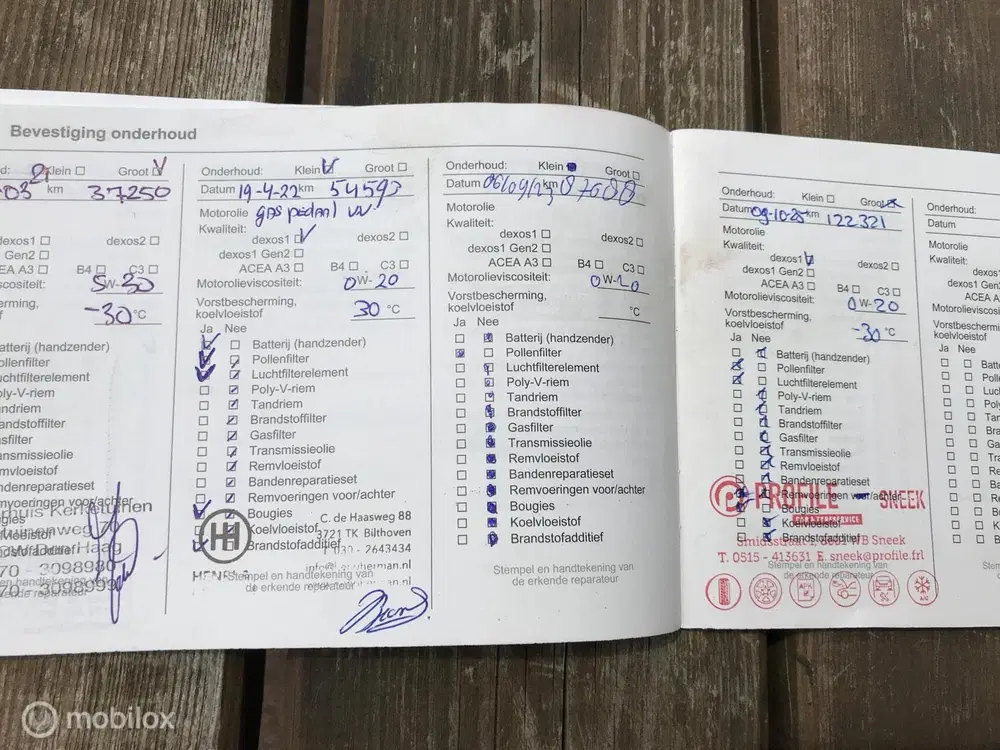 Bevestiging onderhoud
d: Klein Groot
03 21 km 37250
dexos1 dexos2
1 Gen2
ACEA A3 B4 C3
scositeit: 5W-30
erming,
f -30 °C
atterij (handzender)
ollenfilter
uchtfilterelement
oly-V-riem
andriem
randstoffilter
asfilter
ansmissieolie
emvloeistof
andenreparatieset
emvoeringen voor/achter
ougies
oelvloeistof
randstofadditief
70 - 3098980
en en handtekening van
de erkende reparateur
Onderhoud: Klein Groot
Datum 19-4-22 km 54593
Motorolie gaspedaal vv.
Kwaliteit:
dexos1 dexos2
dexos1 Gen2
ACEA A3 B4 C3
Motorolieviscositeit: 0W-20
Vorstbescherming,
koelvloeistof 30 °C
Ja Nee
Batterij (handzender)
Pollenfilter
Luchtfilterelement
Poly-V-riem
Tandriem
Brandstoffilter
Gasfilter
Transmissieolie
Remvloeistof
Bandenreparatieset
Remvoeringen voor/achter
Bougies
Koelvloeistof
Brandstofadditief
C. de Haasweg 88
3721 TK Bilthoven
- 2643434
Stempel en handtekening van
de erkende reparateur
Onderhoud: Klein Groot
Datum 06/09/23 km 87608
Motorolie
Kwaliteit:
dexos1 dexos2
dexos1 Gen2
ACEA A3 B4 C3
Motorolieviscositeit: 0W-20
Vorstbescherming,
koelvloeistof °C
Ja Nee
Batterij (handzender)
Pollenfilter
Luchtfilterelement
Poly-V-riem
Tandriem
Brandstoffilter
Gasfilter
Transmissieolie
Remvloeistof
Bandenreparatieset
Remvoeringen voor/achter
Bougies
Koelvloeistof
Brandstofadditief
Stempel en handtekening van
de erkende reparateur
Onderhoud: Klein Groot
Datum 09-10-25 km 122321
Motorolie
Kwaliteit:
dexos1 dexos2
dexos1 Gen2
ACEA A3 B4 C3
Motorolieviscositeit: 0W-20
Vorstbescherming,
koelvloeistof -30 °C
Ja Nee
Batterij (handzender)
Pollenfilter
Luchtfilterelement
Poly-V-riem
Tandriem
Brandstoffilter
Gasfilter
Transmissieolie
Remvloeistof
Bandenreparatieset
Remvoeringen voor/achter
Bougies
Koelvloeistof
Brandstofadditief
PROFILE SNEEK
CAR & TYRESERVICE
Smidsstraat 8601 WB Sneek
T. 0515 - 413631 E. sneek@profile.frl
Stempel en handtekening van
de erkende reparateur
Onderhoud:
Datum
Motorolie
Kwaliteit:
dexos
dexos1 Gen
ACEA A
Motorolieviscositeit
Vorstbescherming
koelvloeistof
Ja Nee
Batte
Polle
Luch
Poly
Tand
Bra
Gas
Tra
Re
Ba
Re
Bo
Ko
Br
Stem
mobilox